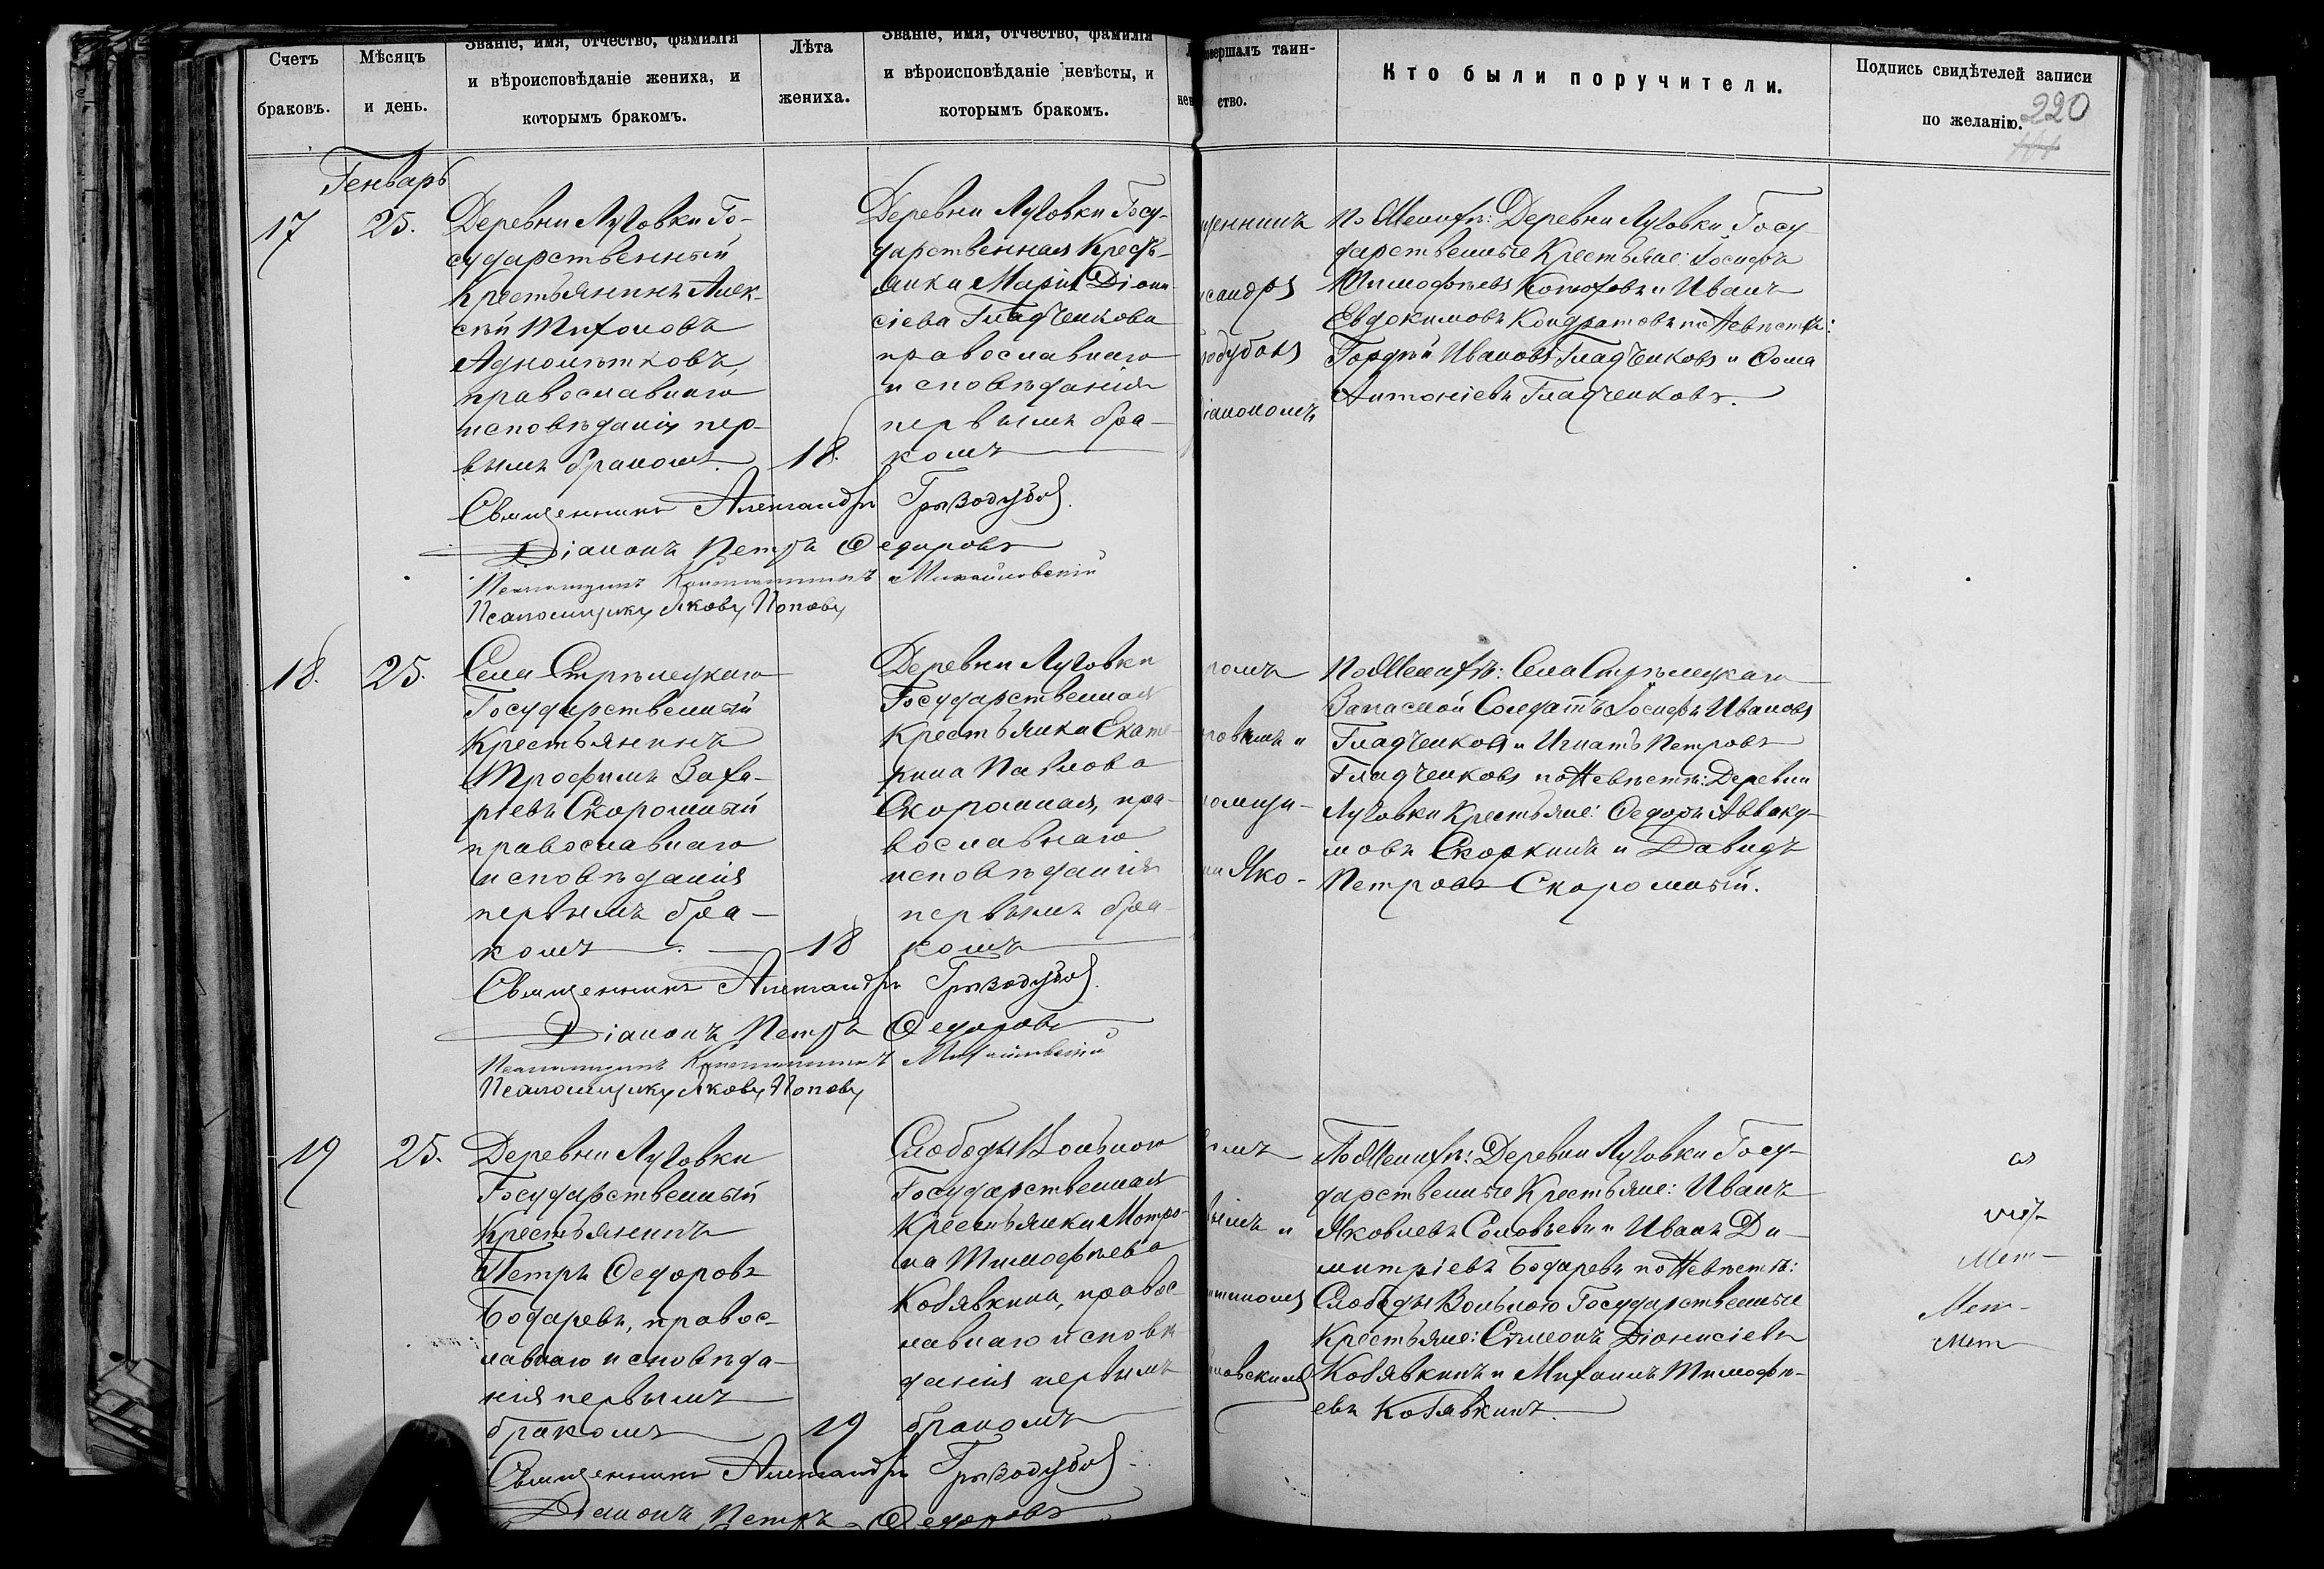 Счетъ
браковъ.
Мѣсяцъ
и день.
Званіе, имя, отчество, фамилія
и вѣроисповѣданіе жениха, и
которымъ бракомъ.
Лѣта
жениха.
Званіе, имя, отчество, фамилія
и вѣроисповѣданіе невѣсты, и
которымъ бракомъ.
совершалъ таин-
ство.
Кто были поручители.
Подпись свидѣтелей записи
по желанію.
220
Генварь
17
25.
Деревни Луговки Го-
сударственный
Крестьянинъ Алек-
сѣй Тихоновъ
Аднолѣтковъ,
православнаго
исповѣданія пер-
вымъ бракомъ.
18.
Деревни Луговки Госу-
дарственная Кресть-
янка Марія Діони-
сіева Гладченкова
православнаго
исповѣданія
первымъ бра-
комъ
щенникъ
ксандръ
зодубовъ
іакономъ
По Женихѣ: Деревни Луговки Госу-
дарственные Крестьяне: Іосифъ
Тимофѣевъ и Иванъ
Евдокимовъ Кондратовъ по Невѣстѣ:
Гордѣй Ивановъ Гладченковъ и Ѳома
Антоніевъ Гладченковъ.
Священникъ Александръ Грызодубовъ.
Діаконъ Петръ Ѳедоровъ
Псаломщикъ Константинъ Михайловскій
Псаломщикъ Яковъ Поповъ
18.
25.
Села Стрѣлецкаго
Государственный
Крестьянинъ
Трофимъ Заха-
ріевъ Скоромный
православнаго
исповѣданія
первымъ бра-
комъ
18
Деревни Луговки
Государственная
Крестьянка Екате-
рина Павлова
Скоромная, пра-
вославнаго
исповѣданія
первымъ бра-
комъ
ромъ
ровымъ и
ломщи-
Яко-
По Женихѣ: Села Стрѣлецкаго
Запасной Солдатъ Іосифъ Ивановъ
Гладченковъ и Игнатъ Петровъ
Гладченковъ по Невѣстѣ: Деревни
Луговки Крестьяне: Ѳедоръ Авваку-
мовъ Скоркинъ и Давидъ
Петровъ Скоромный.
Священникъ Александръ Грызодубовъ.
Діаконъ Петръ Ѳедоровъ
Псаломщикъ Константинъ Михайловскій
Псаломщикъ Яковъ Поповъ
19
25.
Деревни Луговки
Государственный
Крестьянинъ
Петръ Ѳедоровъ
Бодаревъ, правос-
лавнаго исповѣда-
нія первымъ
бракомъ
19
Слободы Вольной
Государственная
Крестьянка Матро-
на Тимофѣева
Кобявкина, правос-
лавнаго исповѣ-
данія первымъ
бракомъ
вымъ и
нтиномъ
ловскимъ
По Женихѣ: Деревни Луговки Госу-
дарственные Крестьяне: Иванъ
Яковлевъ Соловьевъ и Иванъ Ди-
митріевъ Бодаревъ по Невѣстѣ:
Слободы Вольной Государственные
Крестьяне: Симеонъ Діонисіевъ
Кобявкинъ и Михаилъ Тимофѣ-
евъ Кобявкинъ.
Священникъ Александръ Грызодубовъ
Діаконъ Петръ Ѳедоровъ